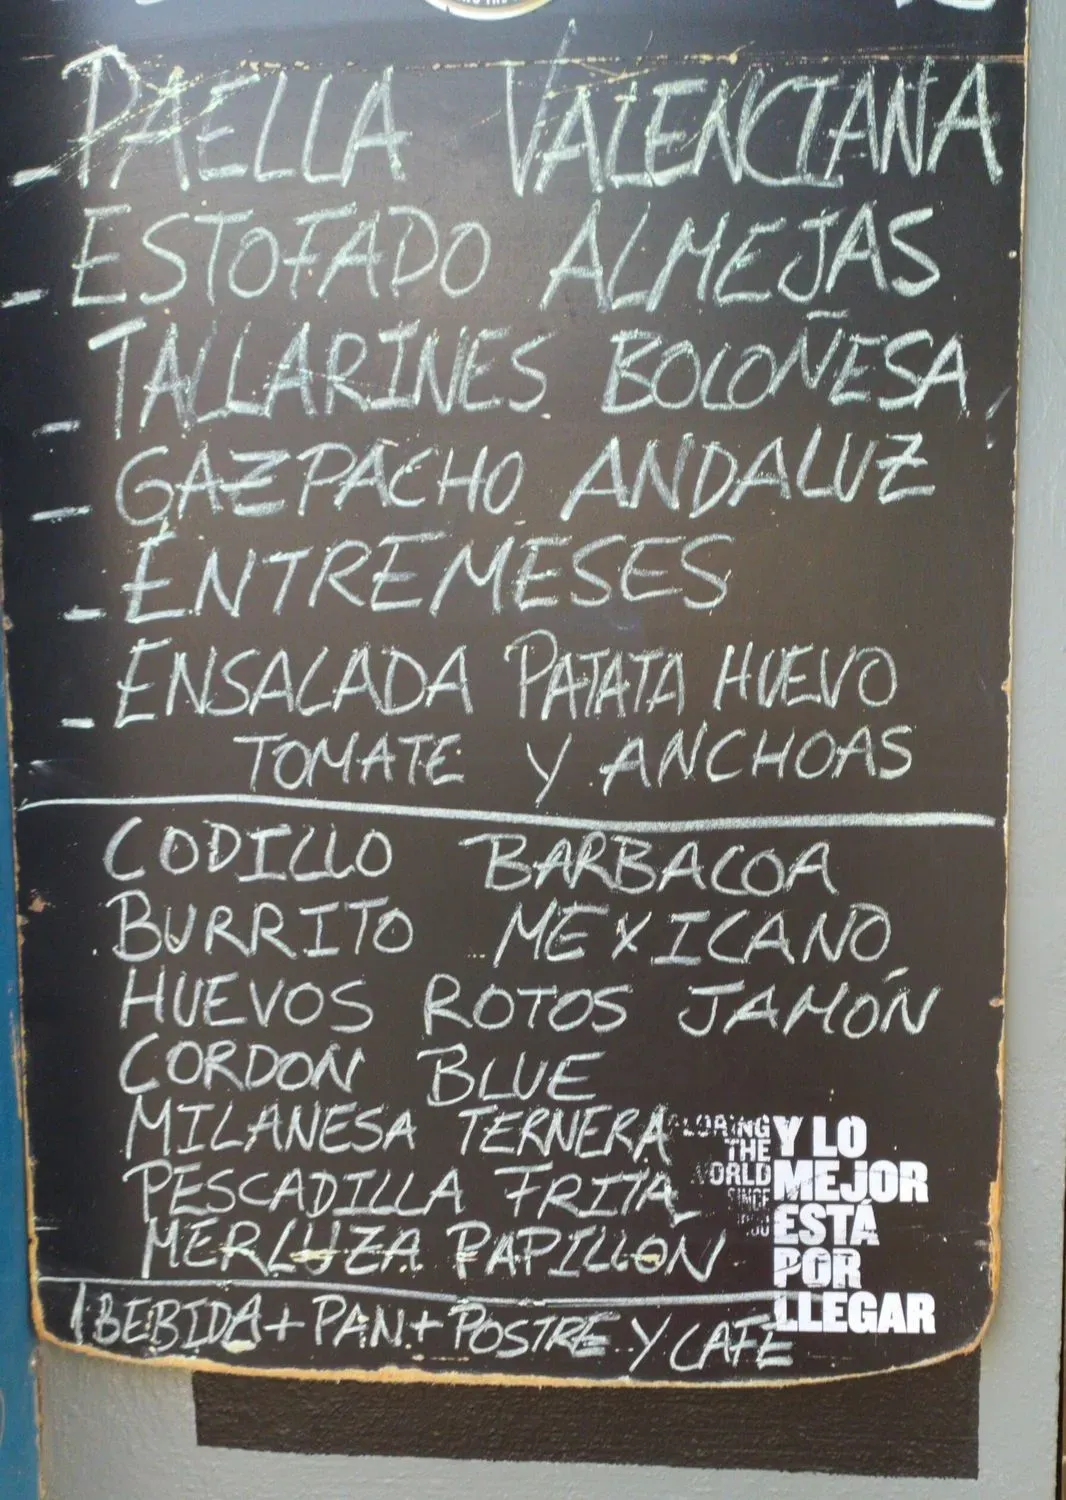 - PAELLA VALENCIANA
- ESTOFADO ALMEJAS
- TALLARINES BOLOÑESA
- GAZPACHO ANDALUZ
- ENTREMESES
- ENSALADA PATATA HUEVO
TOMATE Y ANCHOAS
CODILLO BARBACOA
BURRITO MEXICANO
HUEVOS ROTOS JAMÓN
CORDON BLUE
MILANESA TERNERA
PESCADILLA FRITA
MERLUZA PAPILLON
THE
SINCE
Y LO
MEJOR
ESTÁ
POR
LLEGAR
1 BEBIDA + PAN + POSTRE Y CAFÉ